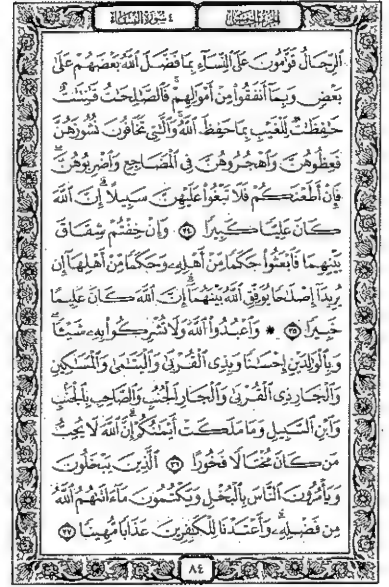 الجزء الخامس ٤ سورة النساء
ٱلرِّجَالُ قَوَّٰمُونَ عَلَى ٱلنِّسَآءِ بِمَا فَضَّلَ ٱللَّهُ بَعْضَهُمْ عَلَىٰ
بَعْضٍ وَبِمَآ أَنفَقُوا۟ مِنْ أَمْوَٰلِهِمْ ۚ فَٱلصَّٰلِحَٰتُ قَٰنِتَٰتٌ
حَٰفِظَٰتٌ لِّلْغَيْبِ بِمَا حَفِظَ ٱللَّهُ ۚ وَٱلَّٰتِى تَخَافُونَ نُشُوزَهُنَّ
فَعِظُوهُنَّ وَٱهْجُرُوهُنَّ فِى ٱلْمَضَاجِعِ وَٱضْرِبُوهُنَّ ۖ
فَإِنْ أَطَعْنَكُمْ فَلَا تَبْغُوا۟ عَلَيْهِنَّ سَبِيلًا ۗ إِنَّ ٱللَّهَ
كَانَ عَلِيًّا كَبِيرًا ٣٤ وَإِنْ خِفْتُمْ شِقَاقَ
بَيْنِهِمَا فَٱبْعَثُوا۟ حَكَمًا مِّنْ أَهْلِهِۦ وَحَكَمًا مِّنْ أَهْلِهَآ إِن
يُرِيدَآ إِصْلَٰحًا يُوَفِّقِ ٱللَّهُ بَيْنَهُمَآ ۗ إِنَّ ٱللَّهَ كَانَ عَلِيمًا
خَبِيرًا ٣٥ * وَٱعْبُدُوا۟ ٱللَّهَ وَلَا تُشْرِكُوا۟ بِهِۦ شَيْـًٔا ۖ
وَبِٱلْوَٰلِدَيْنِ إِحْسَٰنًا وَبِذِى ٱلْقُرْبَىٰ وَٱلْيَتَٰمَىٰ وَٱلْمَسَٰكِينِ
وَٱلْجَارِ ذِى ٱلْقُرْبَىٰ وَٱلْجَارِ ٱلْجُنُبِ وَٱلصَّاحِبِ بِٱلْجَنۢبِ
وَٱبْنِ ٱلسَّبِيلِ وَمَا مَلَكَتْ أَيْمَٰنُكُمْ ۗ إِنَّ ٱللَّهَ لَا يُحِبُّ
مَن كَانَ مُخْتَالًا فَخُورًا ٣٦ ٱلَّذِينَ يَبْخَلُونَ
وَيَأْمُرُونَ ٱلنَّاسَ بِٱلْبُخْلِ وَيَكْتُمُونَ مَآ ءَاتَىٰهُمُ ٱللَّهُ
مِن فَضْلِهِۦ ۗ وَأَعْتَدْنَا لِلْكَٰفِرِينَ عَذَابًا مُّهِينًا ٣٧
٨٤